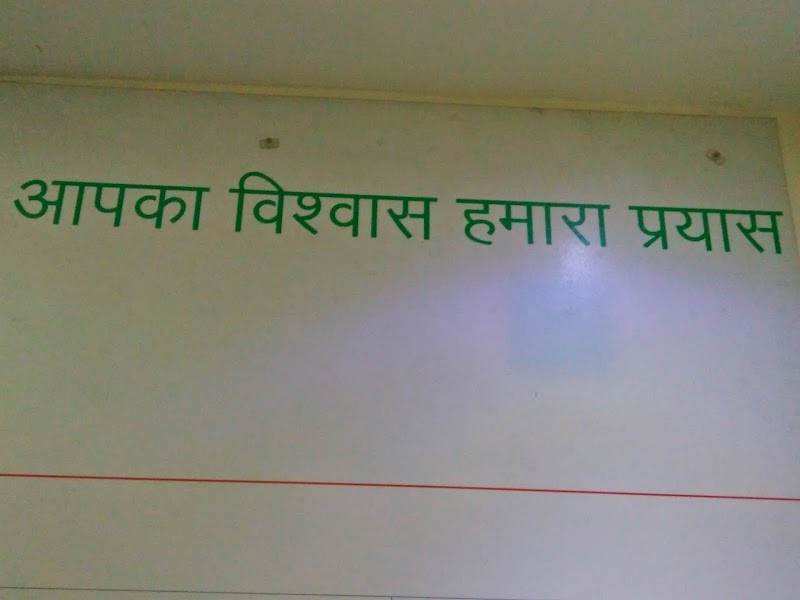 आपका विश्वास हमारा प्रयास